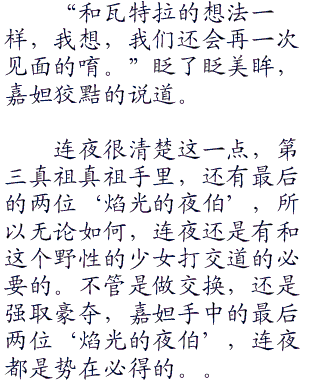 “和瓦特拉的想法一
样，我想，我们还会再一次
见面的唷。”眨了眨美眸，
嘉妲狡黠的说道。
连夜很清楚这一点，第
三真祖真祖手里，还有最后
的两位‘焰光的夜伯’，所
以无论如何，连夜还是有和
这个野性的少女打交道的必
要的。不管是做交换，还是
强取豪夺，嘉妲手中的最后
两位‘焰光的夜伯’，连夜
都是势在必得的。。